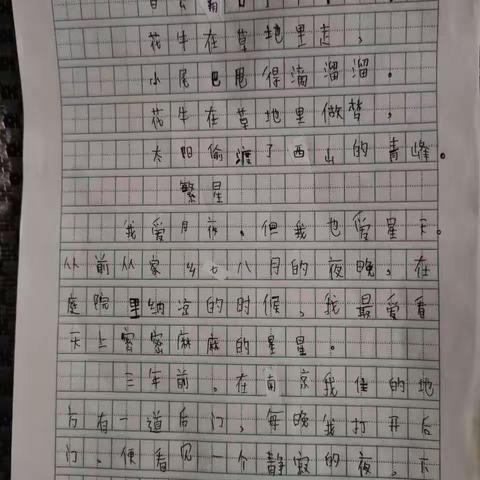 花牛在草地里走，
小尾巴甩得滴溜溜。
花牛在草地里做梦，
太阳偷渡了西山的青峰。
繁星
我爱月夜，但我也爱星天。
从前从家乡七八月的夜晚，在
庭院里纳凉的时候，我最爱看
天上密密麻麻的星星。
三年前，在南京我住的地
方有一道后门，每晚我打开后
门，便看见一个静寂的夜，下